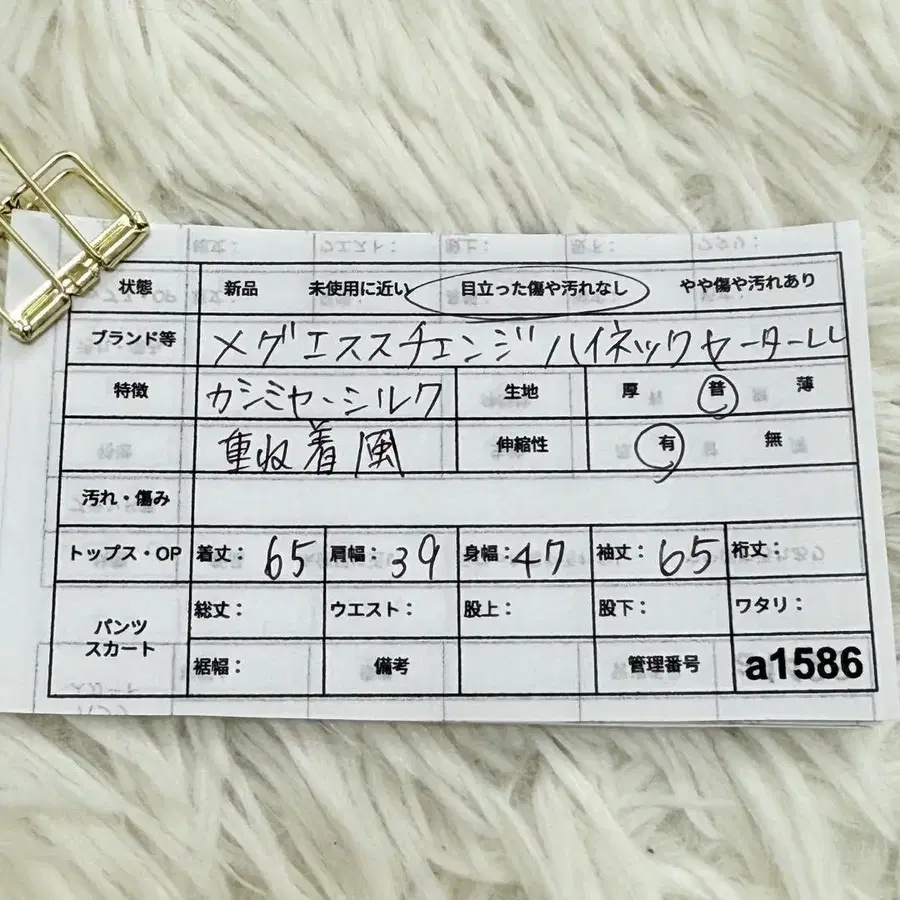 状態 新品 未使用に近い 目立った傷や汚れなし やや傷や汚れあり
ブランド等 メグエススチェンジハイネックセーターLL
特徴 カシミヤ・シルク 生地 厚 普 薄
重ね着風 伸縮性 有 無
汚れ・傷み
トップス・OP 着丈：65 肩幅：39 身幅：47 袖丈：65 裄丈：
パンツ スカート 総丈： ウエスト： 股上： 股下： ワタリ：
裾幅： 備考 管理番号 a1586